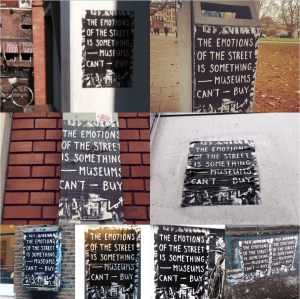 THE EMOTIONS
OF THE STREET
IS SOMETHING
— MUSEUMS
CAN'T — BUY
THE EMOTIONS
OF THE STREET
IS SOMETHING
— MUSEUMS
CAN'T — BUY
THE EMOTIONS
OF THE STREET
IS SOMETHING
— MUSEUMS
CAN'T — BUY
THE EMOTIONS
OF THE STREET
IS SOMETHING
— MUSEUMS
CAN'T — BUY
THE EMOTIONS
OF THE STREET
IS SOMETHING
— MUSEUMS
CAN'T — BUY
THE EMOTIONS
OF THE STREET
IS SOMETHING
— MUSEUMS
CAN'T — BUY
THE EMOTIONS
OF THE STREET
IS SOMETHING
— MUSEUMS
CAN'T — BUY
THE EMOTIONS
OF THE STREET
IS SOMETHING
— MUSEUMS
CAN'T — BUY